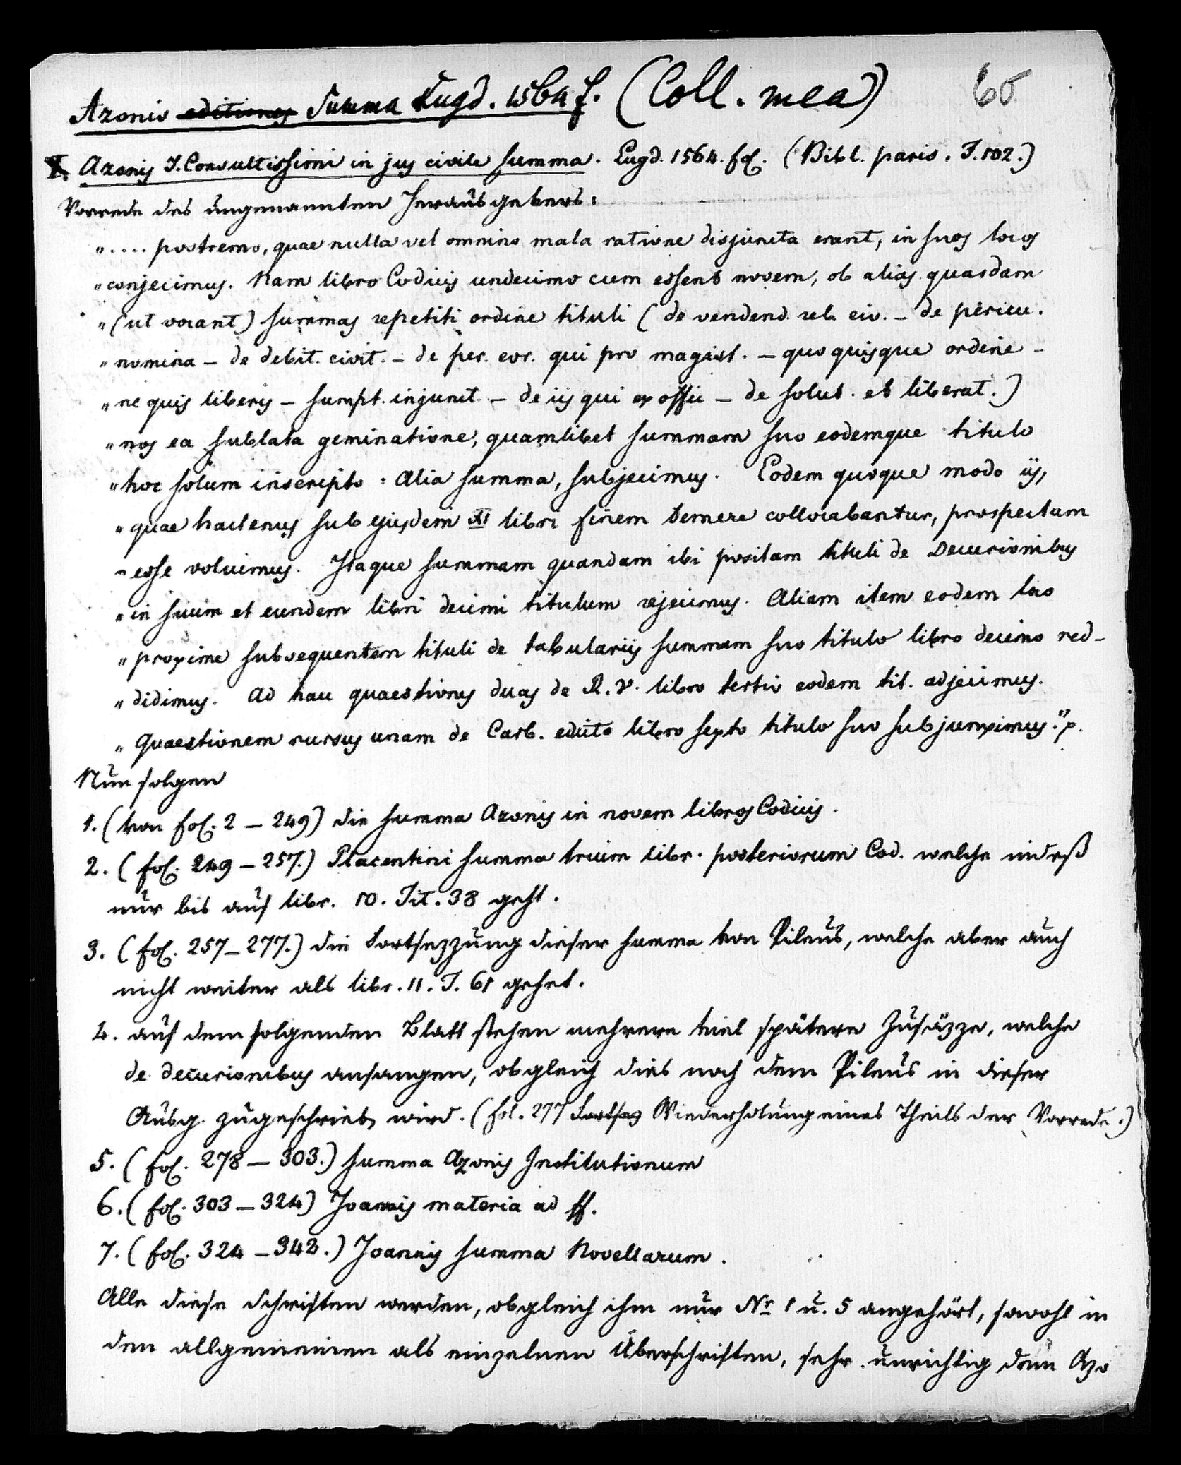 Azonis editiones Summa Lugd. 1564 f. (Coll. mea) 60
I. Azonis J. Consultissimi in jus civile summa. Lugd. 1564. fol. (Bibl. paris. F. 102.)
Vorrede des ungenannten Herausgebers:
".... postremo, quae nulla vel omnino mala ratione disjuncta erant, in suos locos
"conjecimus. Nam libro Codicis undecimo cum essent novem, ob alias quasdam
"(ut vocant) summas repetiti ordine tituli (de vendend. reb. civ. – de pericu.
"nomina – de debit. civit. – de per. eor. qui pro magist. – quo quisque ordine –
"ne quis liberis – sumpt. injunct. – de iis qui ex offic – de solut. et liberat.)
"nos ea sublata geminatione, quamlibet summam suo eodemque titulo
"hoc solum inscripto: Alia summa, subjecimus. Eodem quoque modo iis,
"quae hactenus sub ejusdem XI libri finem temere collocabantur, prospectum
"esse voluimus. Itaque summam quandam ibi positam tituli de Decurionibus
"in suum et eundem libri decimi titulum rejecimus. Aliam item eodem loco
"proxime subsequentem tituli de tabulariis summam suo titulo libro decimo red-
"didimus. Ad hau quaestiones duas de R. V. libro tertio eodem tit. adjecimus.
"Quaestionem rursus unam de Carb. edicto libro sexto titulo suo subjunximus." p.
Nun folgen
1. (von fol. 2 – 249) die Summa Azonis in novem libros Codicis.
2. (fol. 249 – 257.) Placentini Summa trium libr. posteriorum Cod. welche indeß
nur bis auf libr. 10. Tit. 38 geht.
3. (fol. 257 – 277.) die Fortsezzung dieser Summa von Pileus, welche aber auch
nicht weiter als libr. 11. T. 61 gehet.
4. auf dem folgenden Blatt stehen mehrere viel spätere Zusäzze, welche
de decurionibus anfangen, obgleich dies noch dem Pileus in dieser
Ausg. zugeschrieb. wird. (fol. 277 Fortsez Wiederholung eines Theils der Vorrede.)
5. (fol. 278 – 303.) Summa Azonis Institutionum
6. (fol. 303 – 324) Joannis materia ad ff.
7. (fol. 324 – 342.) Joannis summa Novellarum.
Alle diese Schriften werden, obgleich ihm nur Nr. 1 u. 5 angehört, sowohl in
den allgemeinen als einzelnen Überschriften, sehr unrichtig dem Azo